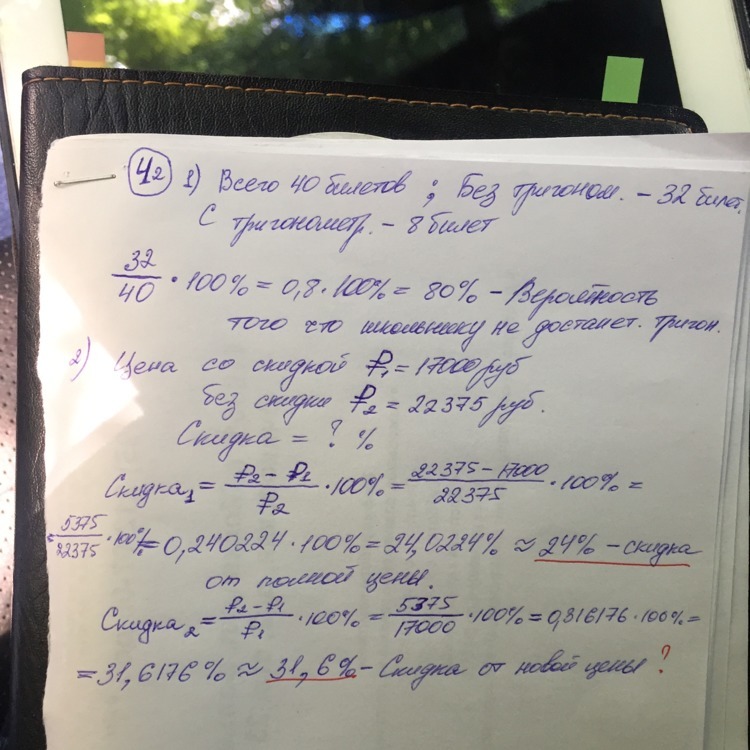 42 1) Всего 40 билетов ; Без тригоном. - 32 билет.
С тригонометр. - 8 билет
32/40 · 100% = 0,8 · 100% = 80% - Вероятность
того что школьнику не достанет. тригон.
2) Цена со скидкой ₽1 = 17000 руб
без скидки ₽2 = 22375 руб.
Скидка = ? %
Скидка1 = (₽2 - ₽1)/₽2 · 100% = (22375 - 17000)/22375 · 100% =
= 5375/22375 · 100% = 0,240224 · 100% = 24,0224% ≈ 24% - скидка
от полной цены.
Скидка2 = (₽2 - ₽1)/₽1 · 100% = 5375/17000 · 100% = 0,316176 · 100% =
= 31,6176% ≈ 31,6% - Скидка от новой цены ?